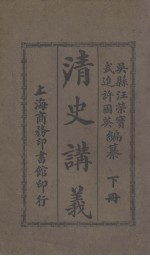 吳縣汪榮寶
武進許國英
編纂
下冊
清史講義
上海商務印書館印行